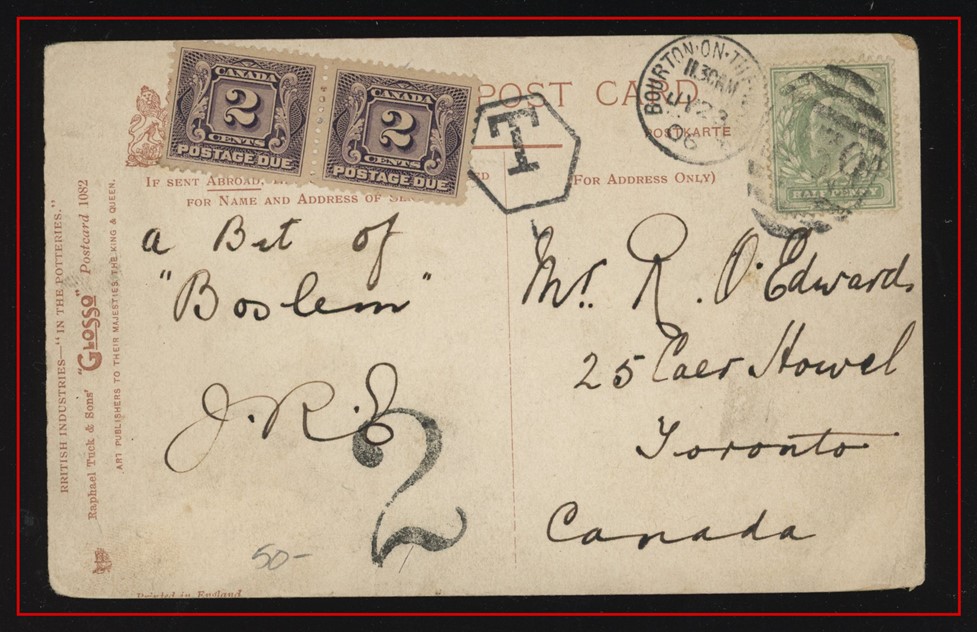 CANADA
2
CENTS
POSTAGE DUE
CANADA
2
CENTS
POSTAGE DUE
T
POST CARD
POSTKARTE
BOURTON·ON·THE
11.30AM
JY 23
06
HALFPENNY
IF SENT ABROAD,
FOR NAME AND ADDRESS OF
(FOR ADDRESS ONLY)
BRITISH INDUSTRIES—"IN THE POTTERIES."
Raphael Tuck & Sons' "GLOSSO" Postcard 1082
ART PUBLISHERS TO THEIR MAJESTIES THE KING & QUEEN.
a Bit of
"Boslem"
J.R.E
2
50-
Mr. R. O. Edwards
25 Caer Howel
Toronto
Canada
Printed in England